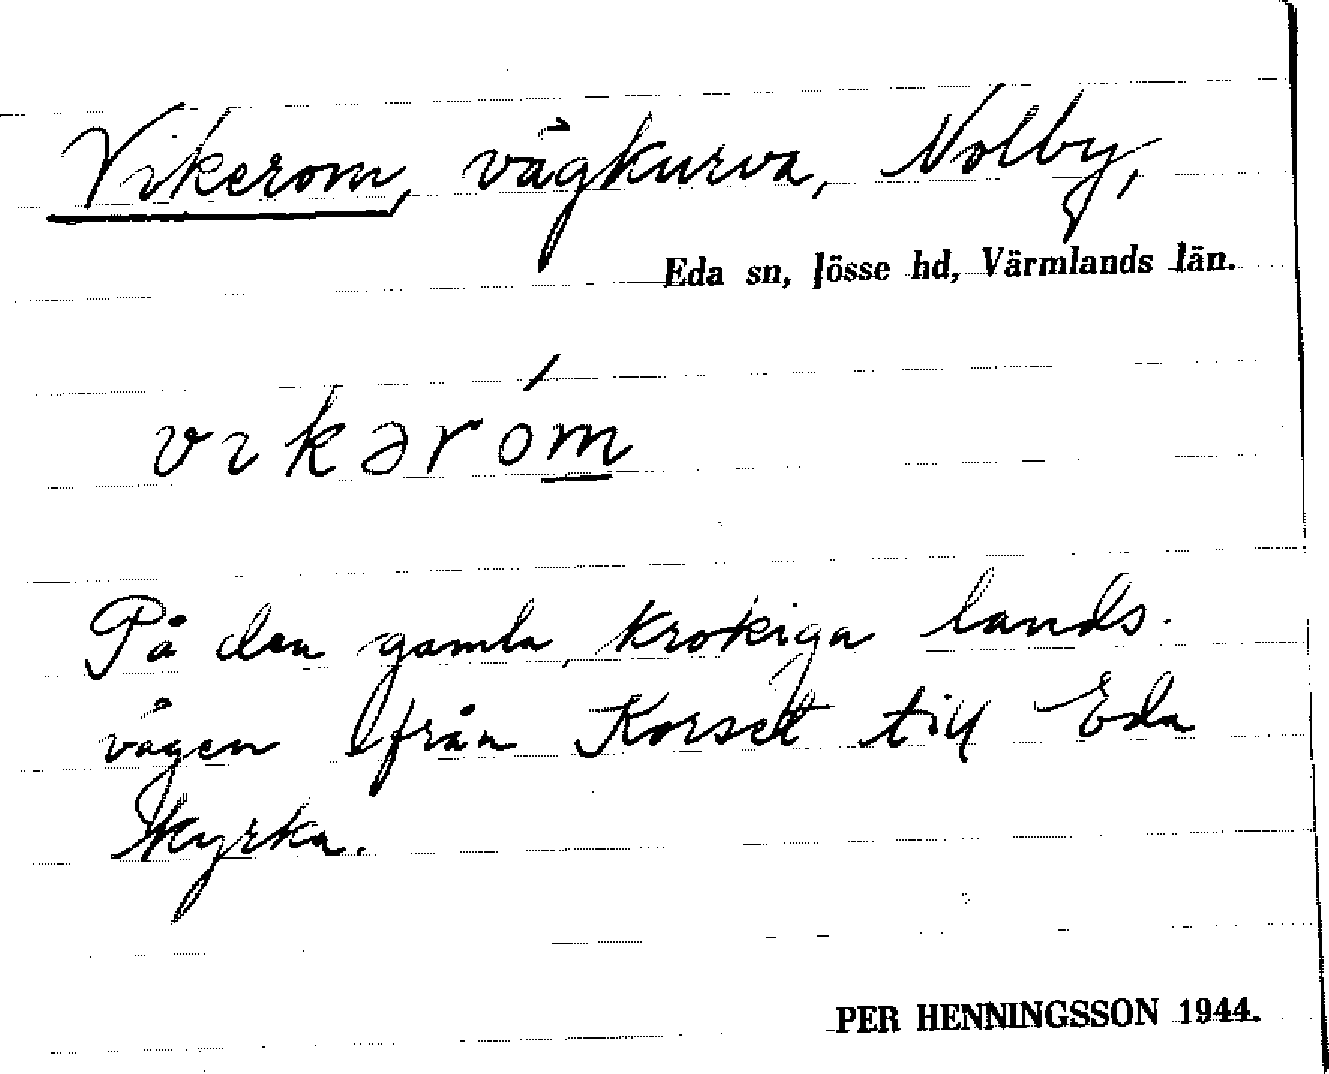 Vikerom, vägkurva, Nolby,
Eda sn, Jösse hd, Värmlands län.
vikəróm
På den gamla krokiga lands-
vägen från Korset till Eda
kyrka.
PER HENNINGSSON 1944.